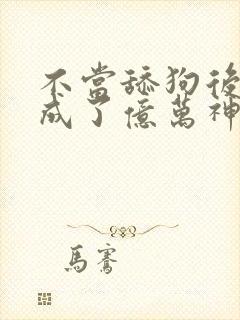 不當舔狗後
成了億萬神
馬騫